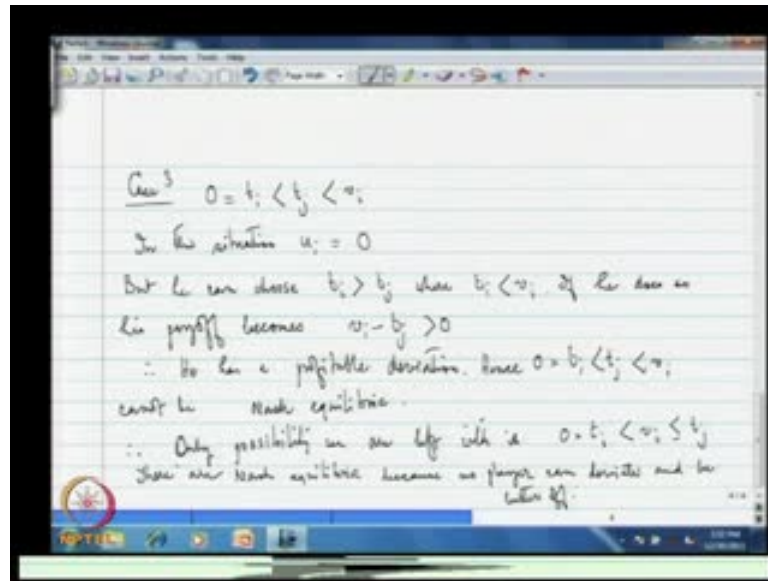 Case 3 0 = t_i < t_j < v_i
In this situation u_i = 0
But he can choose t_i > t_j where t_i < v_i. If he does so
his payoff becomes v_i - t_j > 0
∴ He has a profitable deviation. Hence 0 = t_i < t_j < v_i
cannot be Nash equilibria.
∴ Only possibility we are left with is 0 = t_i < v_i ≤ t_j
These are Nash equilibria because no player can deviate and be
better off.
NPTEL